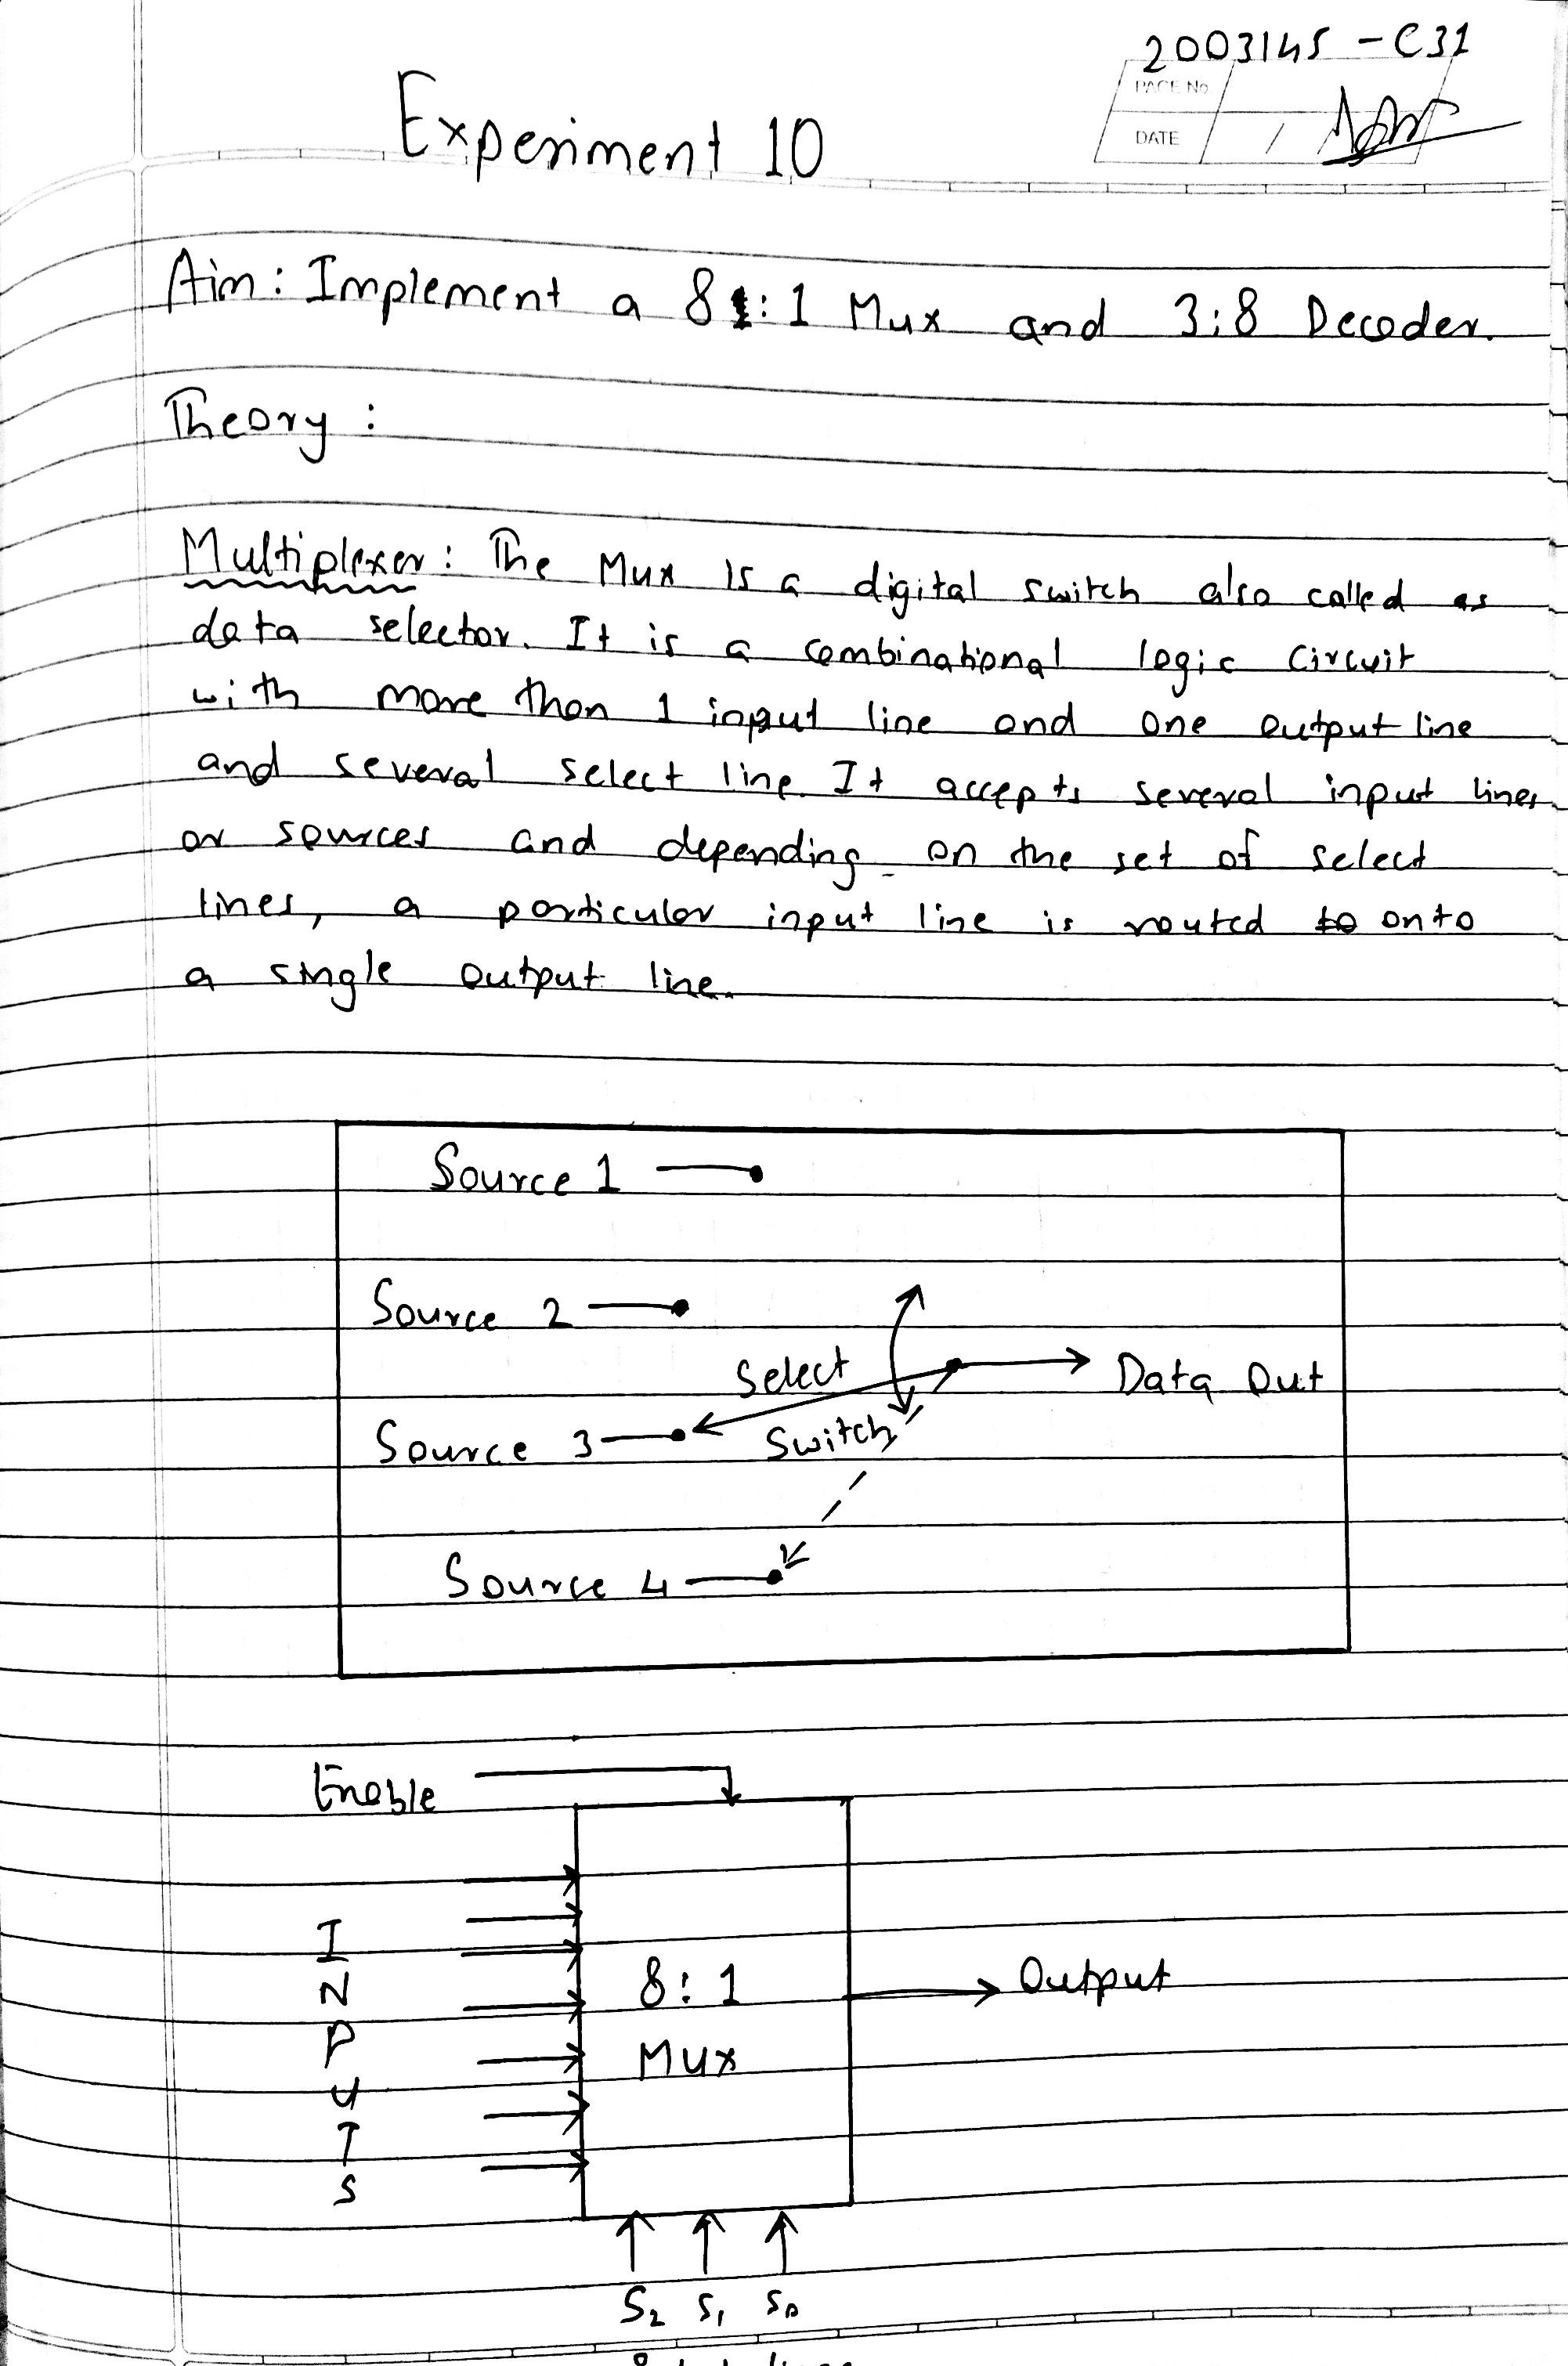 2003145 - C31
PAGE No
DATE / /
Experiment 10
Aim: Implement a 8:1 Mux and 3:8 Decoder.
Theory:
Multiplexer: The Mux is a digital switch also called as
data selector. It is a combinational logic circuit
with more than 1 input line and one output line
and several select line. It accepts several input lines
or sources and depending on the set of select
lines, a particular input line is routed to onto
a single output line.
Source 1
Source 2
Select
Data Out
Source 3
Switch
Source 4
Enable
INPUTS
8:1
Mux
Output
S2 S1 S0